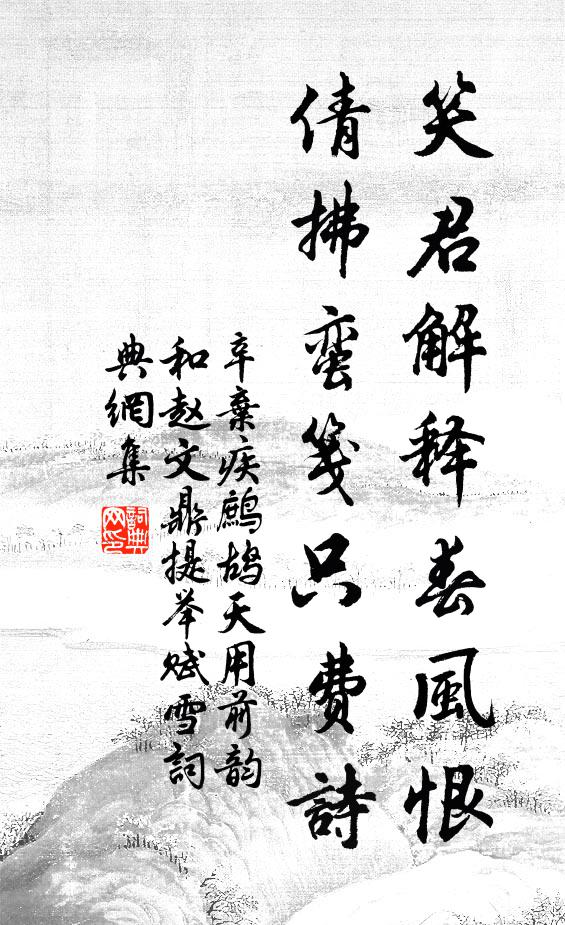 笑君解释春風恨
倩拂蛮笺只費詩
辛棄疾鹧鸪天用前韵
和赵文鼎提举赋雪詞
典網集
詞典
网印